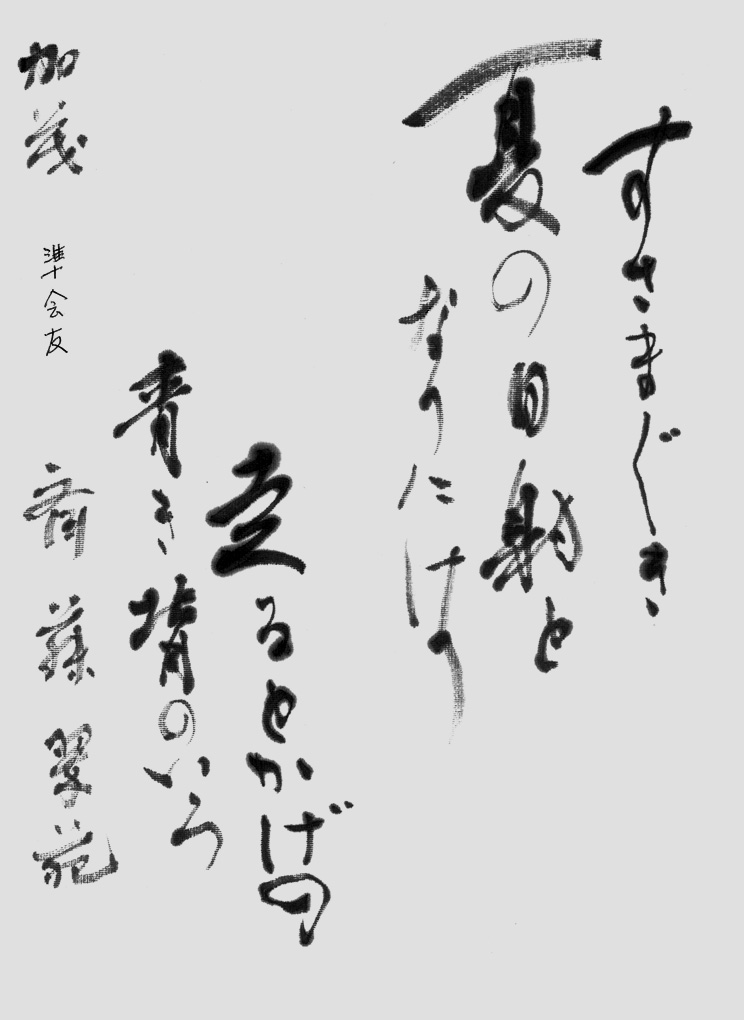 すさまぐき
夏の日射と
なりにけり
走るとかげの
青き背のいろ
加茂 準会友 斉藤翠苑